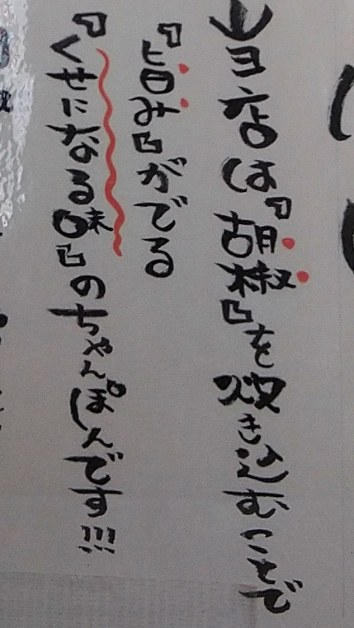 当店は『胡椒』を炊き込むことで
『旨み』がでる
『くせになる味』のちゃんぽんです!!!